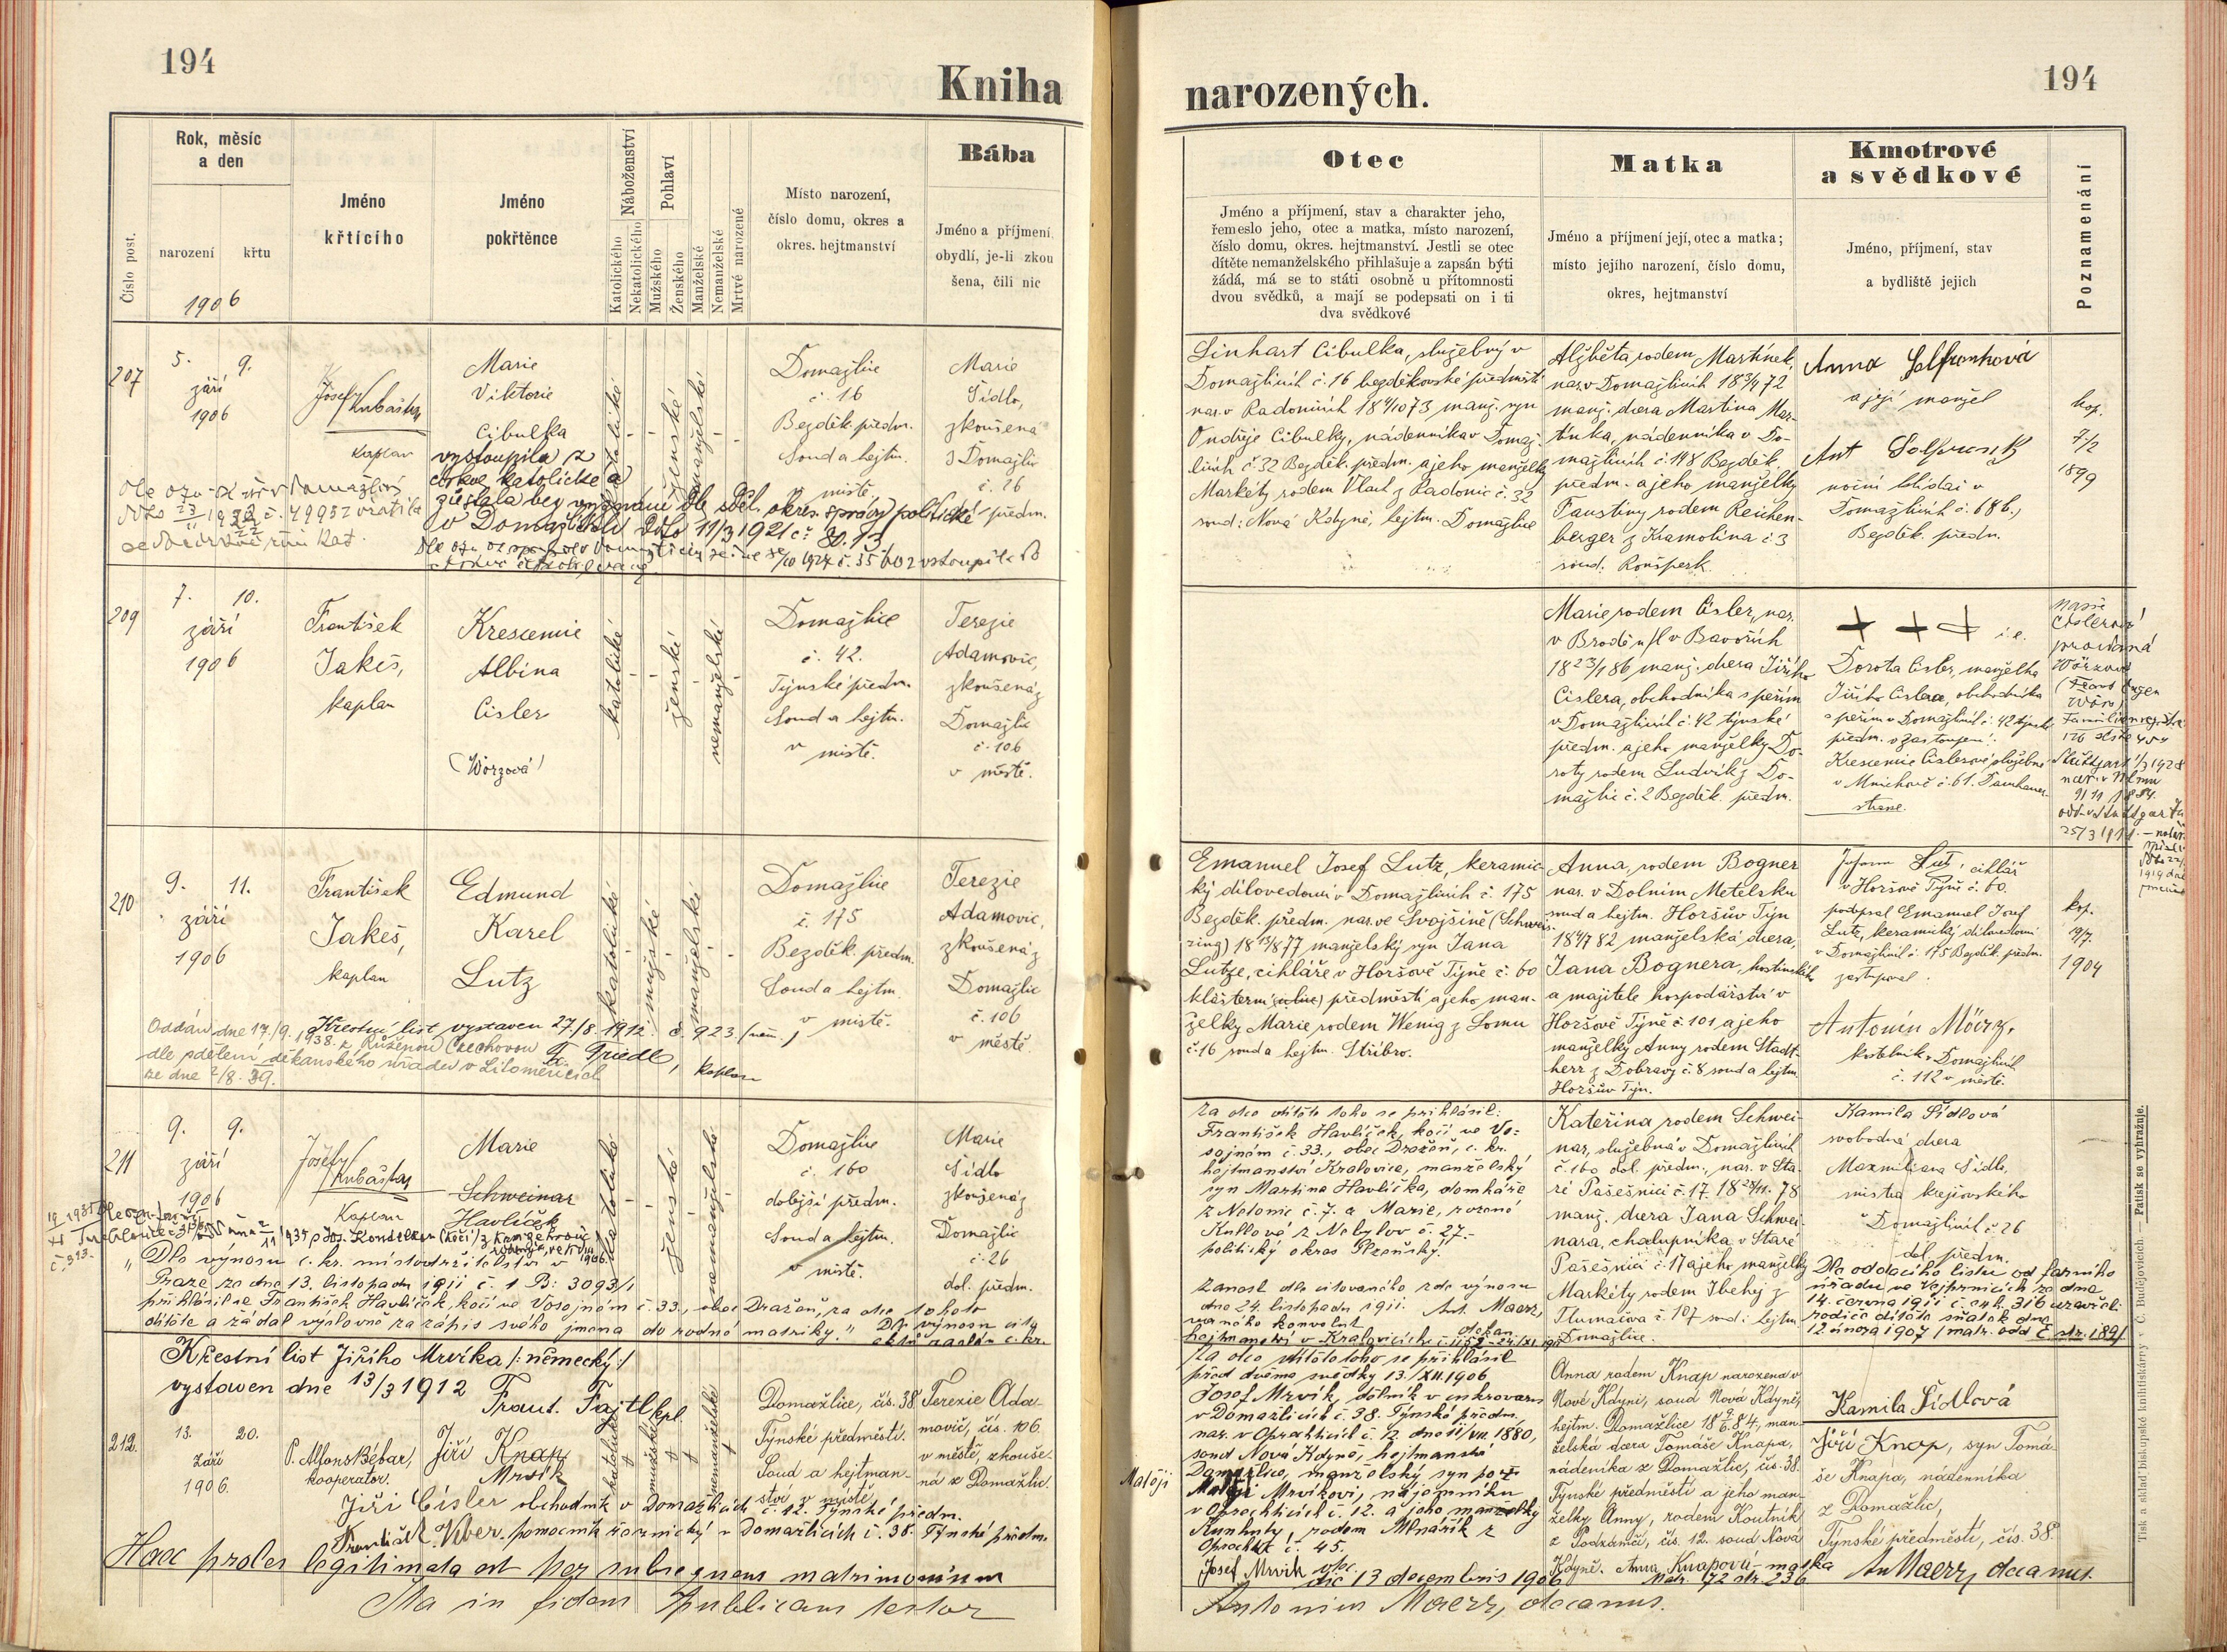 194
Kniha
Rok, měsíc
a den
narození
křtu
1906
Číslo post.
Jméno
křtícího
Jméno
pokřtěnce
Náboženství
Katolického
Nekatolického
Pohlaví
Mužského
Ženského
Manželské
Nemanželské
Mrtvé narozené
Místo narození,
číslo domu, okres a
okres. hejtmanství
Bába
Jméno a příjmení
obydlí, je-li zkou
šena, čili nic
207
5. 9.
září
1906
Josef Kubaštа
kaplan
Marie
Viktorie
Cibulka
vystoupila z
církve katolické a
zůstala bez vyznání dle sděl. okres. správy politické
v Domažlicích ddto 11/3 1921 č. 80.13
katolické
ženské
manželské
Domažlice
č. 16
Bezděk. předm.
Soud a hejtm.
v místě.
Marie
Šídlo,
zkoušená
z Domažlic
č. 26
předm.
209
7. 10.
září
1906
František
Jakeš,
kaplan
Krescencie
Albina
Cisler
(Wörzová)
katolické
ženské
nemanželské
Domažlice
č. 42.
Týnské předm.
Soud a hejtm.
v místě.
Terezie
Adamovic,
zkoušená z
Domažlic
č. 106
v městě.
210
9. 11.
září
1906
František
Jakeš,
kaplan
Edmund
Karel
Lutz
katolické
mužské
manželské
Domažlice
č. 175
Bezděk. předm.
Soud a hejtm.
v místě.
Terezie
Adamovic,
zkoušená z
Domažlic
č. 106
v městě.
Křestní list vystaven 27./8. 1912. č. 923. (něm.)
F. Friedl, kaplan
Oddán dne 17./9. 1938. z Růženou Čechovou
dle sdělení děkanského úřadu v Litoměřicích
ze dne 2/8. 39.
211
9. 9.
září
1906
Josef Kubašta
Kaplan
Marie
Schweinar
Havlíček
katolické
ženské
nemanželské
Domažlice
č. 160
dolejší předm.
Soud a hejtm.
v místě.
Marie
Šídlo
zkoušená z
Domažlic
č. 26
dol. předm.
"Dle výnosu c. kr. místodržitelství v
Praze ze dne 13. listopadu 1911 č. 1 B: 3093/1
přihlásil se František Havlíček, kočí ve Vosojném č. 33., obec Dražeň, za otce tohoto
dítěte a žádal výslovně za zápis svého jména do rodné matriky."
Křestní list Jiřího Mrvíka /: německý :/
vystaven dne 13/3 1912 Frant. Fajtl kpl.
212.
13. 20.
Září
1906.
P. Alfons Bébar,
kooperator.
Jiří Knap
Mrvík
katolické
mužské
nemanželské
Domažlice, čís. 38
Týnské předměstí.
Soud a hejtman-
ství v místě.
Terezie Ada-
movič, čís. 106
v městě, zkouše-
ná z Domažlic.
Jiří Císler obchodník v Domažlicích č. 42. Týnské předm.
František Weber, pomocník řeznický v Domažlicích č. 38. Týnské předm.
Haec proles legitimata est per subsequens matrimonium
Ita in fidem publicam testor
194
narozených.
Otec
Jméno a příjmení, stav a charakter jeho,
řemeslo jeho, otec a matka, místo narození,
číslo domu, okres. hejtmanství. Jestli se otec
dítěte nemanželského přihlašuje a zapsán býti
žádá, má se to státi osobně u přítomnosti
dvou svědků, a mají se podepsati on i ti
dva svědkové
Matka
Jméno a příjmení její, otec a matka;
místo jejího narození, číslo domu,
okres, hejtmanství
Kmotrové
a svědkové
Jméno, příjmení, stav
a bydliště jejich
Poznamenání
Linhart Cibulka, služebný v
Domažlicích č. 16 bezděkovské předměstí
nar. v Radonicích 18 4/10 73 manž. syn
Ondřeje Cibulky, nádenníka v Domaž-
licích č. 32 Bezděk. předm. a jeho manželky
Markéty rodem Vlach z Radonic č. 32
soud: Nová Kdyně, hejtm. Domažlice
Alžběta rodem Martínek,
nar. v Domažlicích 18 3/4 72
manž. dcera Martina Mar-
tínka, nádenníka v Do-
mažlicích č. 148 Bezděk.
předm. a jeho manželky
Faustiny rodem Reichen-
berger z Kramolína č. 3
soud: Ronšperk.
Anna
a její manžel
Ant
noční hlídač v
Domažlicích č. 686.,
Bezděk. předm.
kop.
7/2
1899
Marie rodem Cisler, nar.
v Brodě n/l v Bavořích
18 23/1 86 manž. dcera Jiřího
Cislera, obchodníka s peřím
v Domažlicích č. 42 týnské
předm. a jeho manželky Do-
roty rodem Ludvík z Do-
mažlic č. 2 Bezděk. předm.
+ + + i.e.
Dorota Cisler, manželka
Jiřího Cislera, obchodníka
s peřím v Domažlicích č. 42 týnské
předm. v zastoupení
Krescencie Cislerové služebné
v Mnichově č. 61.
strasse.
provdaná
Stuttgart 1/3 1928
Emanuel Josef Lutz, keramic-
ký dílovedoucí v Domažlicích č. 175
Bezděk. předm. nar. ve Svojšíně (Schwei-
zing) 18 13/8 77 manželský syn Jana
Lutze, cihláře v Horšově Týně č. 60
klášterní (ulice) předměstí a jeho man-
želky Marie rodem Wenig z Lomu
č. 16 soud a hejtm. Stříbro.
Anna, rodem Bogner
nar. v Dolním Metelsku
soud a hejtm. Horšův Týn
18 4/7 82 manželská dcera,
Jana Bognera, hostinského
a majitele hospodářství v
Horšově Týně č. 101 a jeho
manželky Anny rodem Stadt-
herr z Dobravy č. 8 soud a hejtm.
Horšův Týn.
Johann Lutz, cihlář
v Horšově Týně č. 60.
podepsal Emanuel Josef
Lutz, keramický dílovedoucí
v Domažlicích č. 175 Bezděk. předm.
zastupoval.
Antonín Möcrz,
kostelník v Domažlicích
č. 112 v městě.
kop.
19/7.
1904
Za otce dítěte toho se přihlásil:
František Havlíček, kočí ve Vo-
sojném č. 33., obec Dražeň, c. kr.
hejtmanství Kralovice, manželský
syn Martina Havlíčka, domkáře
z Netonic č. 7. a Marie, rozené
Kullové z Nebylov č. 27.-
politický okres Plzeňský.
Zanesl dle citovaného zde výnosu
dne 24. listopadu 1911. Ant. Maerz,
děkan
Kateřina rodem Schwei-
nar, služebná v Domažlicích
č. 160 dol. předm., nar. v Sta-
ré Pašešnici č. 17. 18 28/11. 78
manž. dcera Jana Schwei-
nara, chalupníka v Staré
Pašešnici č. 17 a jeho manželky
Markéty rodem Ibehej z
Tlumačova č. 107 soud i hejtm.
Domažlice.
Kamila Šídlová
svobodná dcera
Maxmiliana Šídla,
mistra krejčovského
v Domažlicích č. 26
dol. předm.
Dle oddacího listu od farního
úřadu ve Vejprnicích ze dne
14. června 1911 č. exh. 316 uzavřeli
rodiče dítěte sňatek dne
12 února 1907
Za otce dítěte toho se přihlásil
před dvěma svědky 13./XII. 1906
Josef Mrvík, dělník v cukrovaru
v Domažlicích č. 38. Týnské předm.,
nar. v Oprechticích č. 12. dne 11/VII. 1880,
soud Nová Kdyně, hejtmanství
Domažlice, manželský syn
Matěji
Matěje Mrvíkovi, nájemníku
v Oprechticích č. 12. a jeho manželky
Kunhuty, rodem Mlnařík z
Oprechtic č. 45.
Josef Mrvík otec.
Anna rodem Knap narozena v
Nové Kdyni, soud Nová Kdyně,
hejtm. Domažlice 18 9/6. 84, man-
želská dcera Tomáše Knapa,
nádeníka z Domažlic, čís. 38.
Týnské předměstí a jeho man-
želky Anny, rodem Koutník
z Podzámčí, čís. 12. soud Nová
Kdyně. Anna Knapová - matka
Matr. 172 str. 236
Kamila Šídlová
Jiří Knap, syn Tomá-
še Knapa, nádenníka
z Domažlic,
Týnské předměstí, čís. 38.
Ant Maerz, decanus.
die 13 decembris 1906
Antonius Maerz, decanus.
Tisk a sklad biskupské knihtiskárny v Č. Budějovicích. — Patisk se vyhražuje.